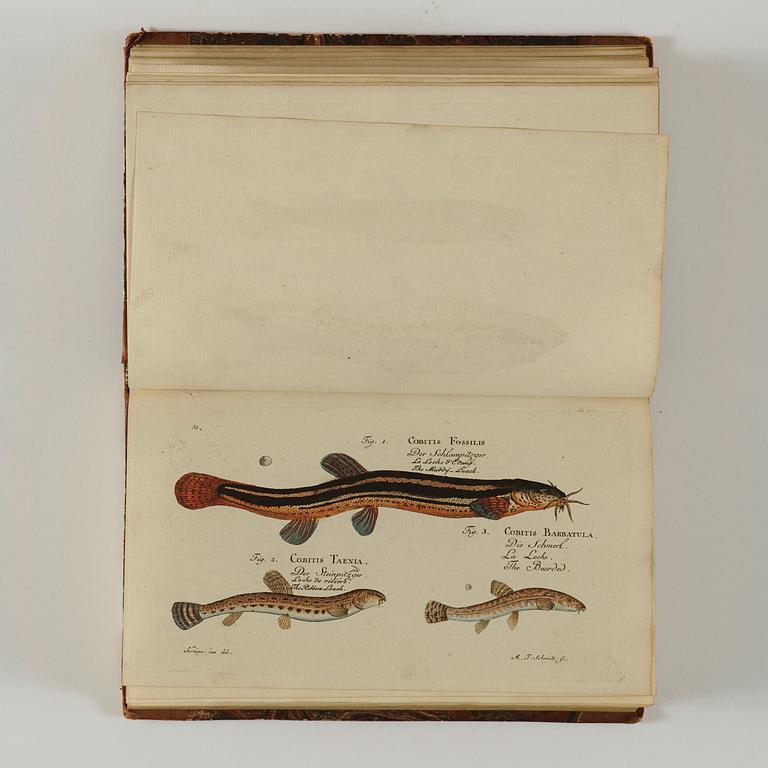 31.
Fig. 1. COBITIS FOSSILIS
Der Schlampitzger.
La Loche d'Etang.
The Muddy-Loach.
Fig. 3. COBITIS BARBATULA.
Die Schmerl.
La Loche.
The Bearded.
Fig. 2. COBITIS TAENIA.
Der Steinpitzger.
Loche de riviere.
The Ribbon Loach.
Krüger jun del.
M. F. Schmidt, sc.